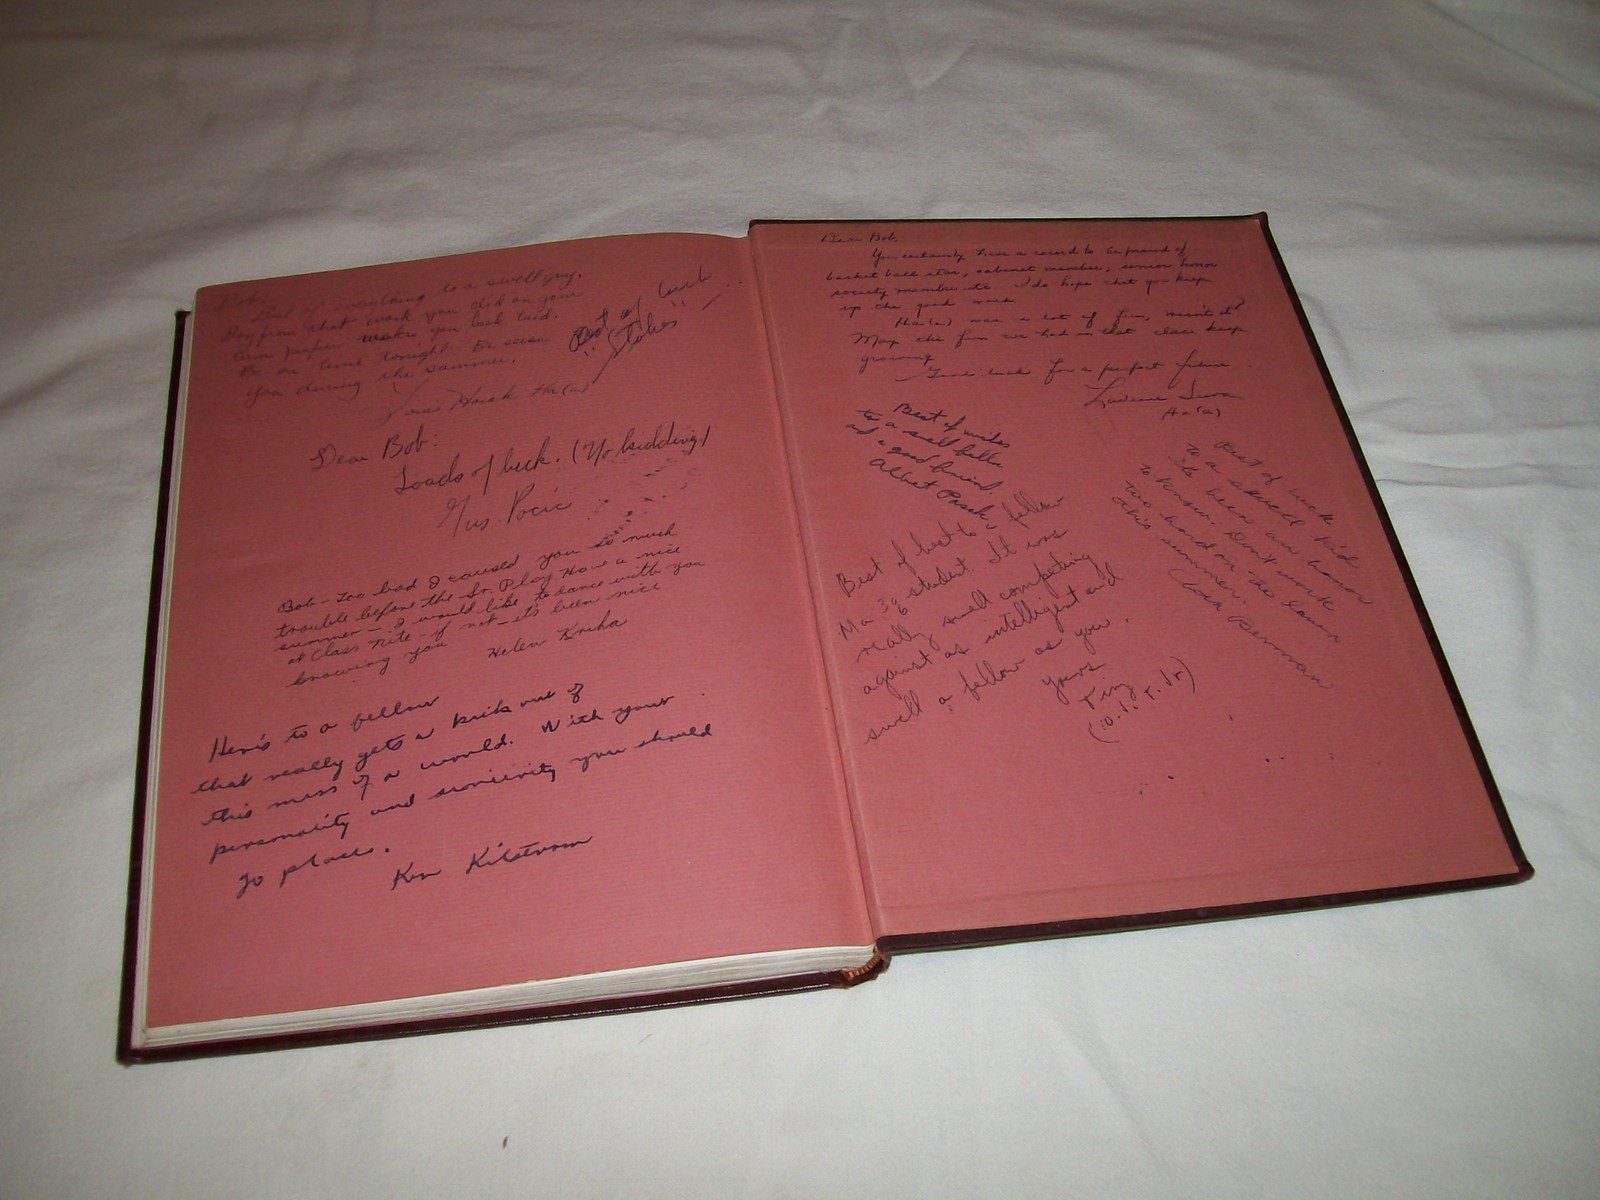 Bob:
Best of everything to a swell guy.
Boy from that work you did on your
term paper makes you look tired.
Be on time tonight. Be seein
you during the summer.
Horak Ha(a)
Best of luck
Stokes
Dear Bob:
Loads of luck. (No kidding)
Gus Pocic
Bob - Too bad I caused you so much
trouble before the Sr. Play. Have a nice
summer - I would like to dance with you
at Class Nite - if not - it's been nice
knowing you
Helen Kriha
Here's to a fellow
that really gets a kick out of
this mess of a world. With your
personality and sincerity you should
go places.
Ken Kilstrom
Dear Bob,
You certainly have a record to be proud of
basket ball star, cabinet member, senior honor
society member etc. I do hope that you keep
up the good work
Ha(a) was a lot of fun, wasn't it?
May the fun we had in that class keep
growing.
Good luck for a perfect future
Ha(a)
Best of wishes
to a swell fella
and a good friend.
Albert
Best of best to a fellow
Ma 38 student. It was
really swell competing
against as intelligent and
swell a fellow as you.
yours
Tiny
Best of luck
to a swell kid
Its been an honor
to know. Don't work
too hard on the
this summer.
Berman